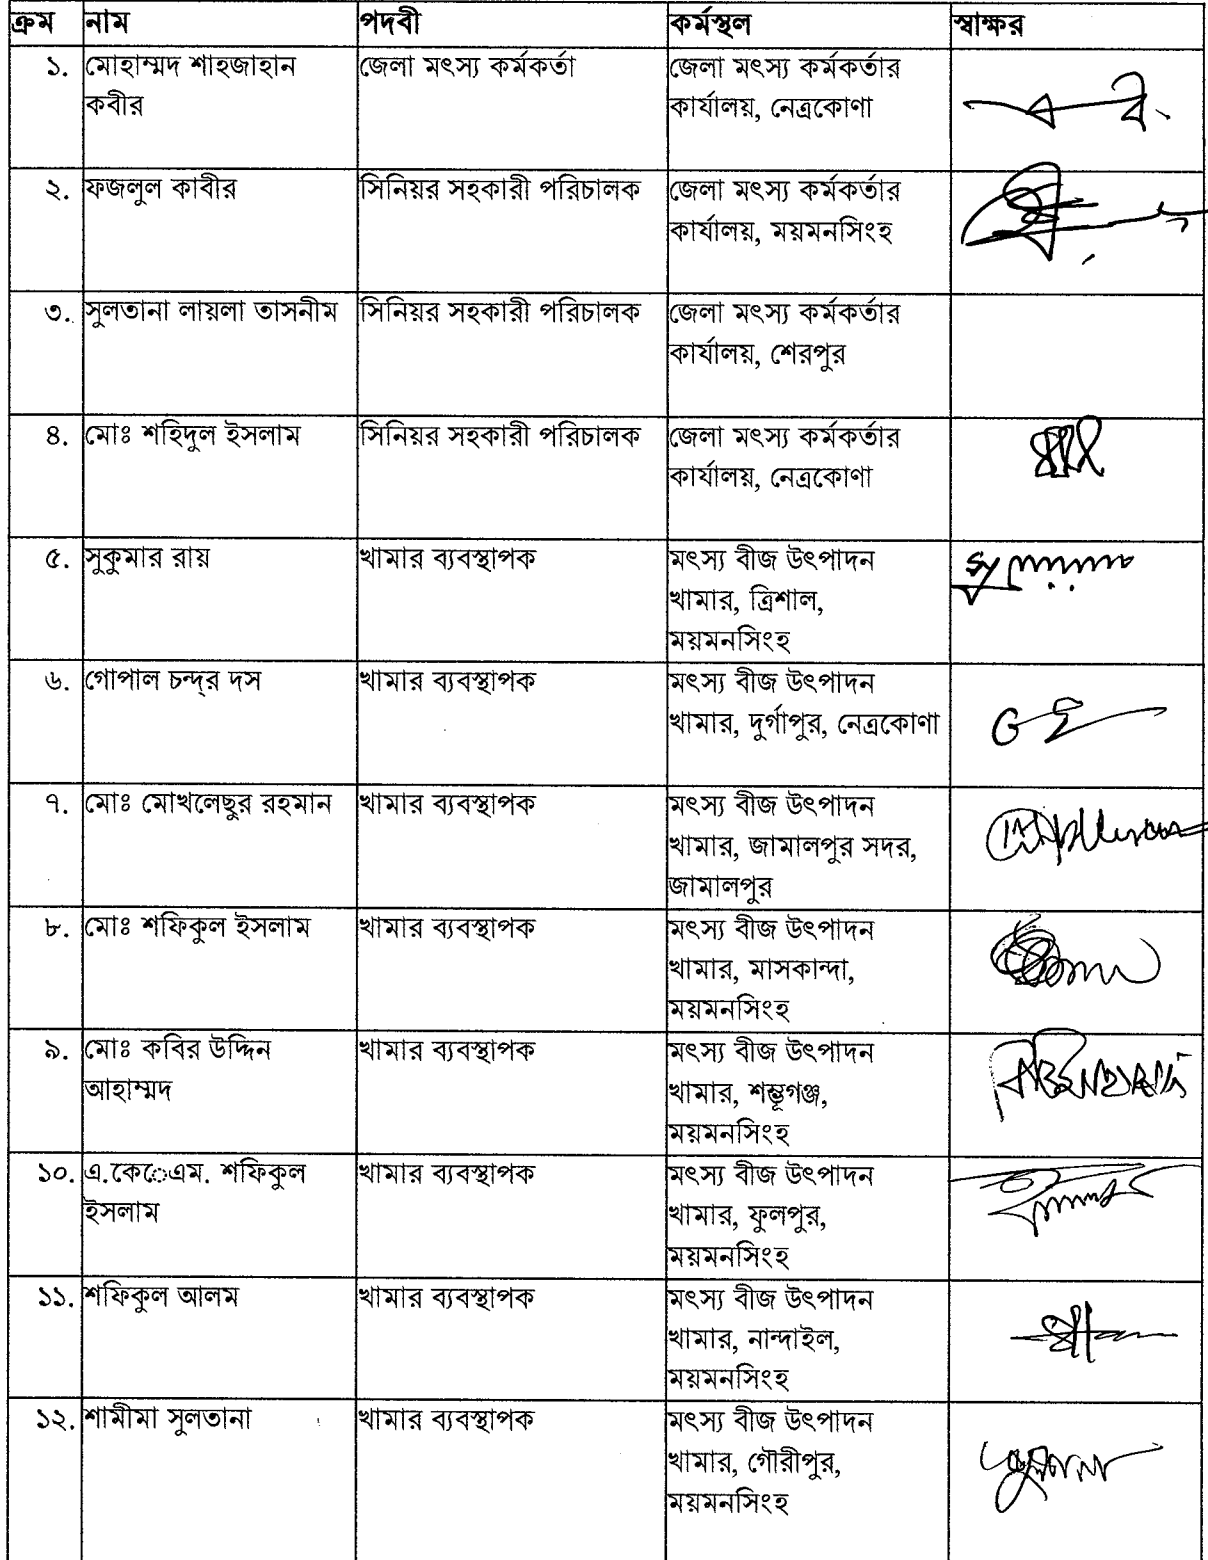 ক্রম নাম পদবী কর্মস্থল স্বাক্ষর
১. মোহাম্মদ শাহজাহান জেলা মৎস্য কর্মকর্তা জেলা মৎস্য কর্মকর্তার
কবীর কার্যালয়, নেত্রকোণা
২. ফজলুল কাবীর সিনিয়র সহকারী পরিচালক জেলা মৎস্য কর্মকর্তার
কার্যালয়, ময়মনসিংহ
৩. সুলতানা লায়লা তাসনীম সিনিয়র সহকারী পরিচালক জেলা মৎস্য কর্মকর্তার
কার্যালয়, শেরপুর
৪. মোঃ শহিদুল ইসলাম সিনিয়র সহকারী পরিচালক জেলা মৎস্য কর্মকর্তার
কার্যালয়, নেত্রকোণা
৫. সুকুমার রায় খামার ব্যবস্থাপক মৎস্য বীজ উৎপাদন
খামার, ত্রিশাল,
ময়মনসিংহ
৬. গোপাল চন্দ্র দস খামার ব্যবস্থাপক মৎস্য বীজ উৎপাদন
খামার, দুর্গাপুর, নেত্রকোণা
৭. মোঃ মোখলেছুর রহমান খামার ব্যবস্থাপক মৎস্য বীজ উৎপাদন
খামার, জামালপুর সদর,
জামালপুর
৮. মোঃ শফিকুল ইসলাম খামার ব্যবস্থাপক মৎস্য বীজ উৎপাদন
খামার, মাসকান্দা,
ময়মনসিংহ
৯. মোঃ কবির উদ্দিন খামার ব্যবস্থাপক মৎস্য বীজ উৎপাদন
আহাম্মদ খামার, শম্ভূগঞ্জ,
ময়মনসিংহ
১০. এ.কে.েএম. শফিকুল খামার ব্যবস্থাপক মৎস্য বীজ উৎপাদন
ইসলাম খামার, ফুলপুর,
ময়মনসিংহ
১১. শফিকুল আলম খামার ব্যবস্থাপক মৎস্য বীজ উৎপাদন
খামার, নান্দাইল,
ময়মনসিংহ
১২. শামীমা সুলতানা খামার ব্যবস্থাপক মৎস্য বীজ উৎপাদন
খামার, গৌরীপুর,
ময়মনসিংহ